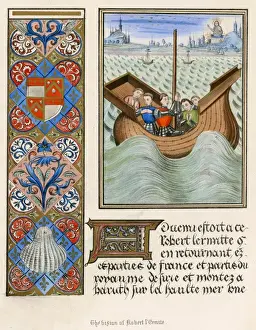 Aduenu estoit a ce
Robert lermitte q
en retournant ez
parties de france et partis du
royaume de surie et montez a
baruth sur la haulte mer une
The vision of Robert l'Ermite